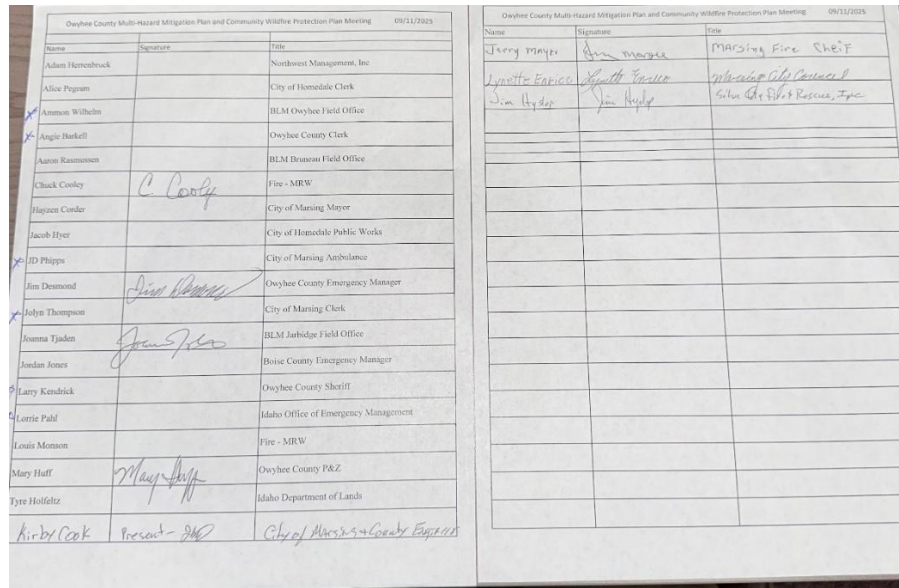 Owyhee County Multi-Hazard Mitigation Plan and Community Wildfire Protection Plan Meeting 09/11/2025
Name Signature Title
Adam Herrenbruck Northwest Management, Inc
Alice Pegram City of Homedale Clerk
Ammon Wilhelm BLM Owyhee Field Office
Angie Barkell Owyhee County Clerk
Aaron Rasmussen BLM Bruneau Field Office
Chuck Cooley C Cooley Fire - MRW
Hayzen Corder City of Marsing Mayor
Jacob Hyer City of Homedale Public Works
JD Phipps City of Marsing Ambulance
Jim Desmond Jim Desmond Owyhee County Emergency Manager
Jolyn Thompson City of Marsing Clerk
Joanna Tjaden BLM Jarbidge Field Office
Jordan Jones Boise County Emergency Manager
Larry Kendrick Owyhee County Sheriff
Lorrie Pahl Idaho Office of Emergency Management
Louis Monson Fire - MRW
Mary Huff Mary Huff Owyhee County P&Z
Tyre Holfeltz Idaho Department of Lands
Kirby Cook Present - City of Marsing + County Engineer
Owyhee County Multi-Hazard Mitigation Plan and Community Wildfire Protection Plan Meeting 09/11/2025
Name Signature Title
Jerry Marsing Fire Cheif
Lynette Enrico Lynette Enrico Marsing City Council
Jim Hyslop Jim Hyslop Silver City Fire & Rescue, Inc